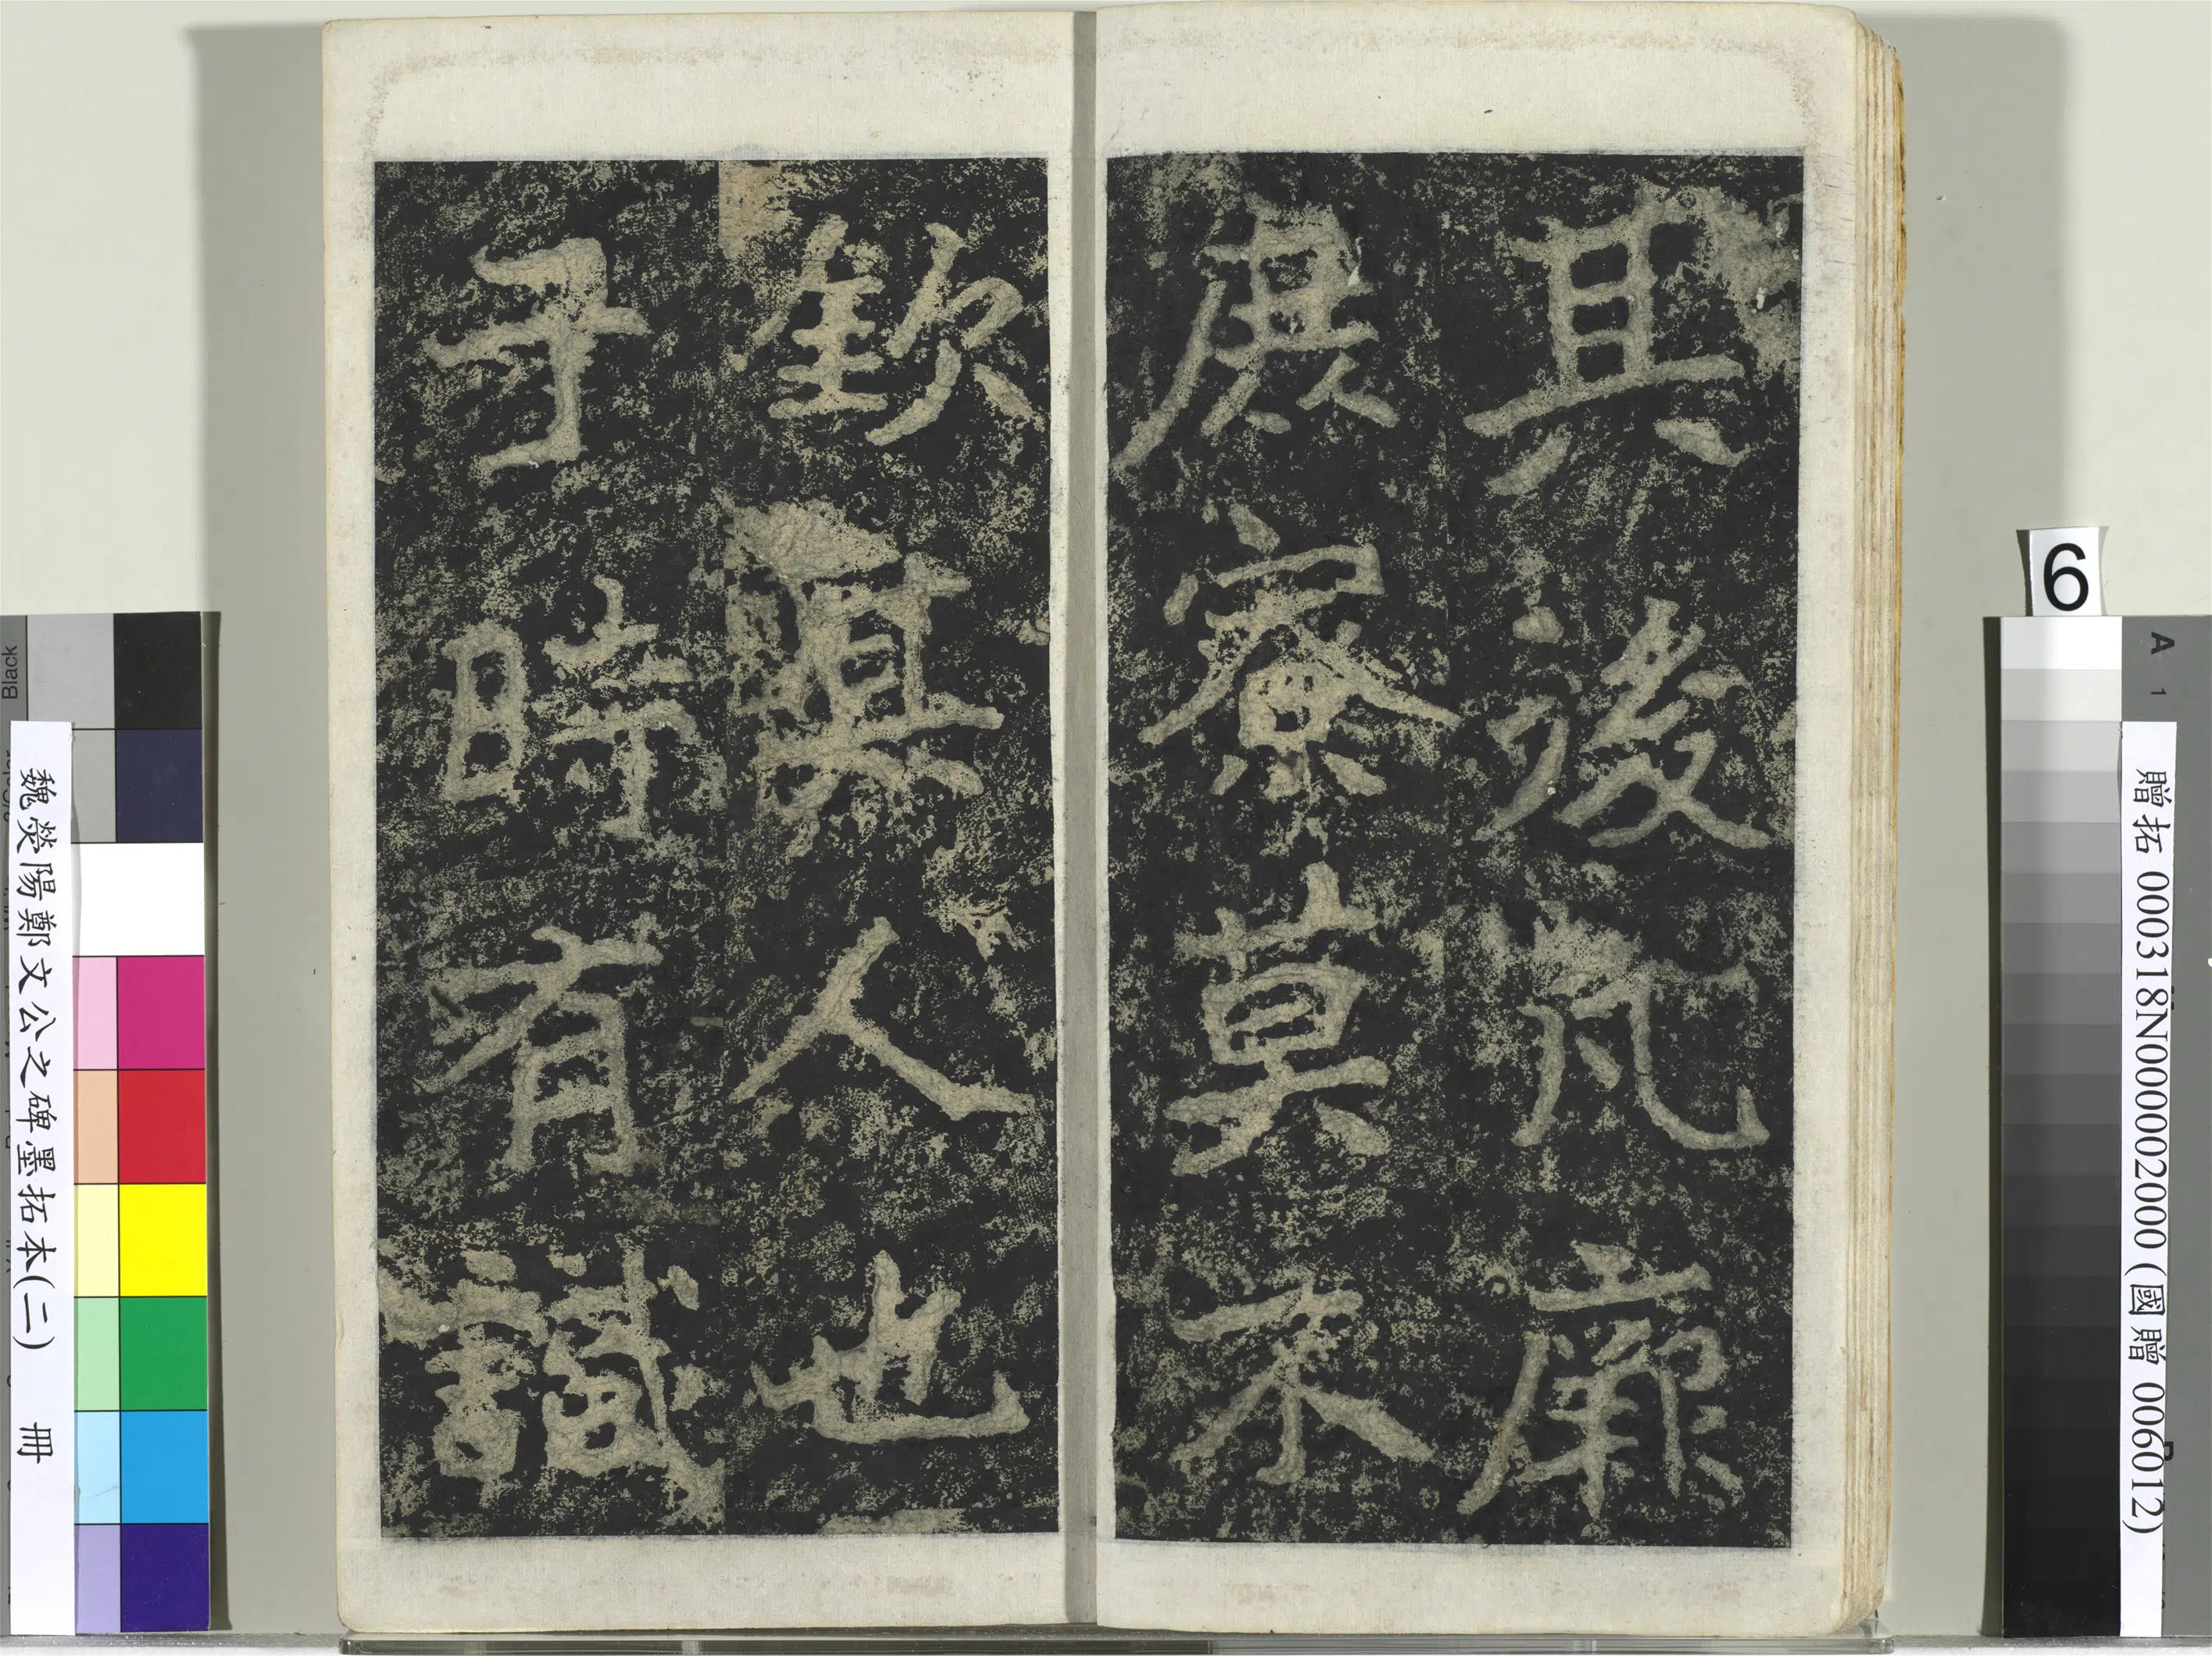 其後凡厥
庶寮莫不
欽其人也
于時有識
魏滎陽鄭文公之碑墨拓本(二) 冊
贈拓 000318N000002000 (國贈 006012)
6
A
1
Black